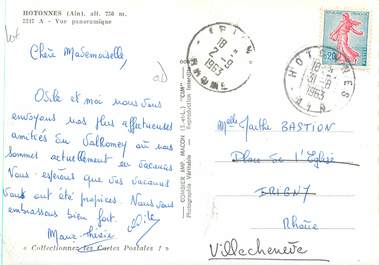 HOTONNES (Ain), alt. 750 m.
2217 A - Vue panoramique
Chère Mademoiselle,
Odile et moi nous vous
envoyons nos plus affectueuses
amitiés du Valromey où nous
sommes actuellement en vacances
Nous espérons que ces vacances
vous ont été propices. Nous vous
embrassons bien fort.
Odile
Marie-Thérèse
« Collectionnez les Cartes Postales ! »
COMBIER IMP. MACON (S.-&-L.) "CIM"
Photographie Véritable - Reproduction Interdite
18 H
2-9
1963
RHONE
HOTONNES
18 H
31-8
1963
AIN
0,20
Melle Marthe BASTION
Place de l'Eglise
IRIGNY
Rhône
Villechenève